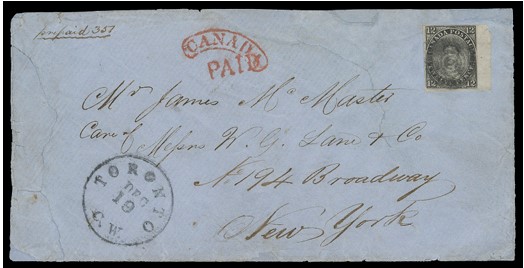 prepaid 357
CANADA
PAID
12 CANADA POSTAGE 12
12 12
Mr James McMaster
Care of Messrs W. G. Lane & Co
No 194 Broadway
New York
TORONTO
DEC
19
C.W.